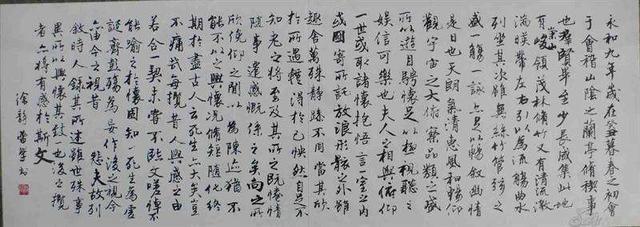 永和九年歲在癸丑暮春之初會
于會稽山陰之蘭亭脩稧事
也群賢畢至少長咸集此地
有崇山峻領茂林脩竹又有清流激
湍暎帶左右引以爲流觴曲水
列坐其次雖無絲竹管弦之
盛一觴一詠亦足以暢叙幽情
是日也天朗氣清惠風和暢仰
觀宇宙之大俯察品類之盛
所以遊目騁懷足以極視聽之
娛信可樂也夫人之相與俯仰
一世或取諸懷抱悟言一室之内
或因寄所託放浪形骸之外雖
趣舍萬殊靜躁不同當其欣
於所遇暫得於己怏然自足不
知老之將至及其所之既惓情
隨事遷感慨係之矣向之所
欣俛仰之閒以爲陳迹猶不
能不以之興懷況脩短隨化終
期於盡古人云死生亦大矣豈
不痛哉每攬昔人興感之由
若合一契未嘗不臨文嗟悼不
能喻之於懷固知一死生爲虛
誕齊彭殤爲妄作後之視今
亦由今之視昔 悲夫故列
敘時人錄其所述雖世殊事
異所以興懷其致一也後之攬
者亦將有感於斯文